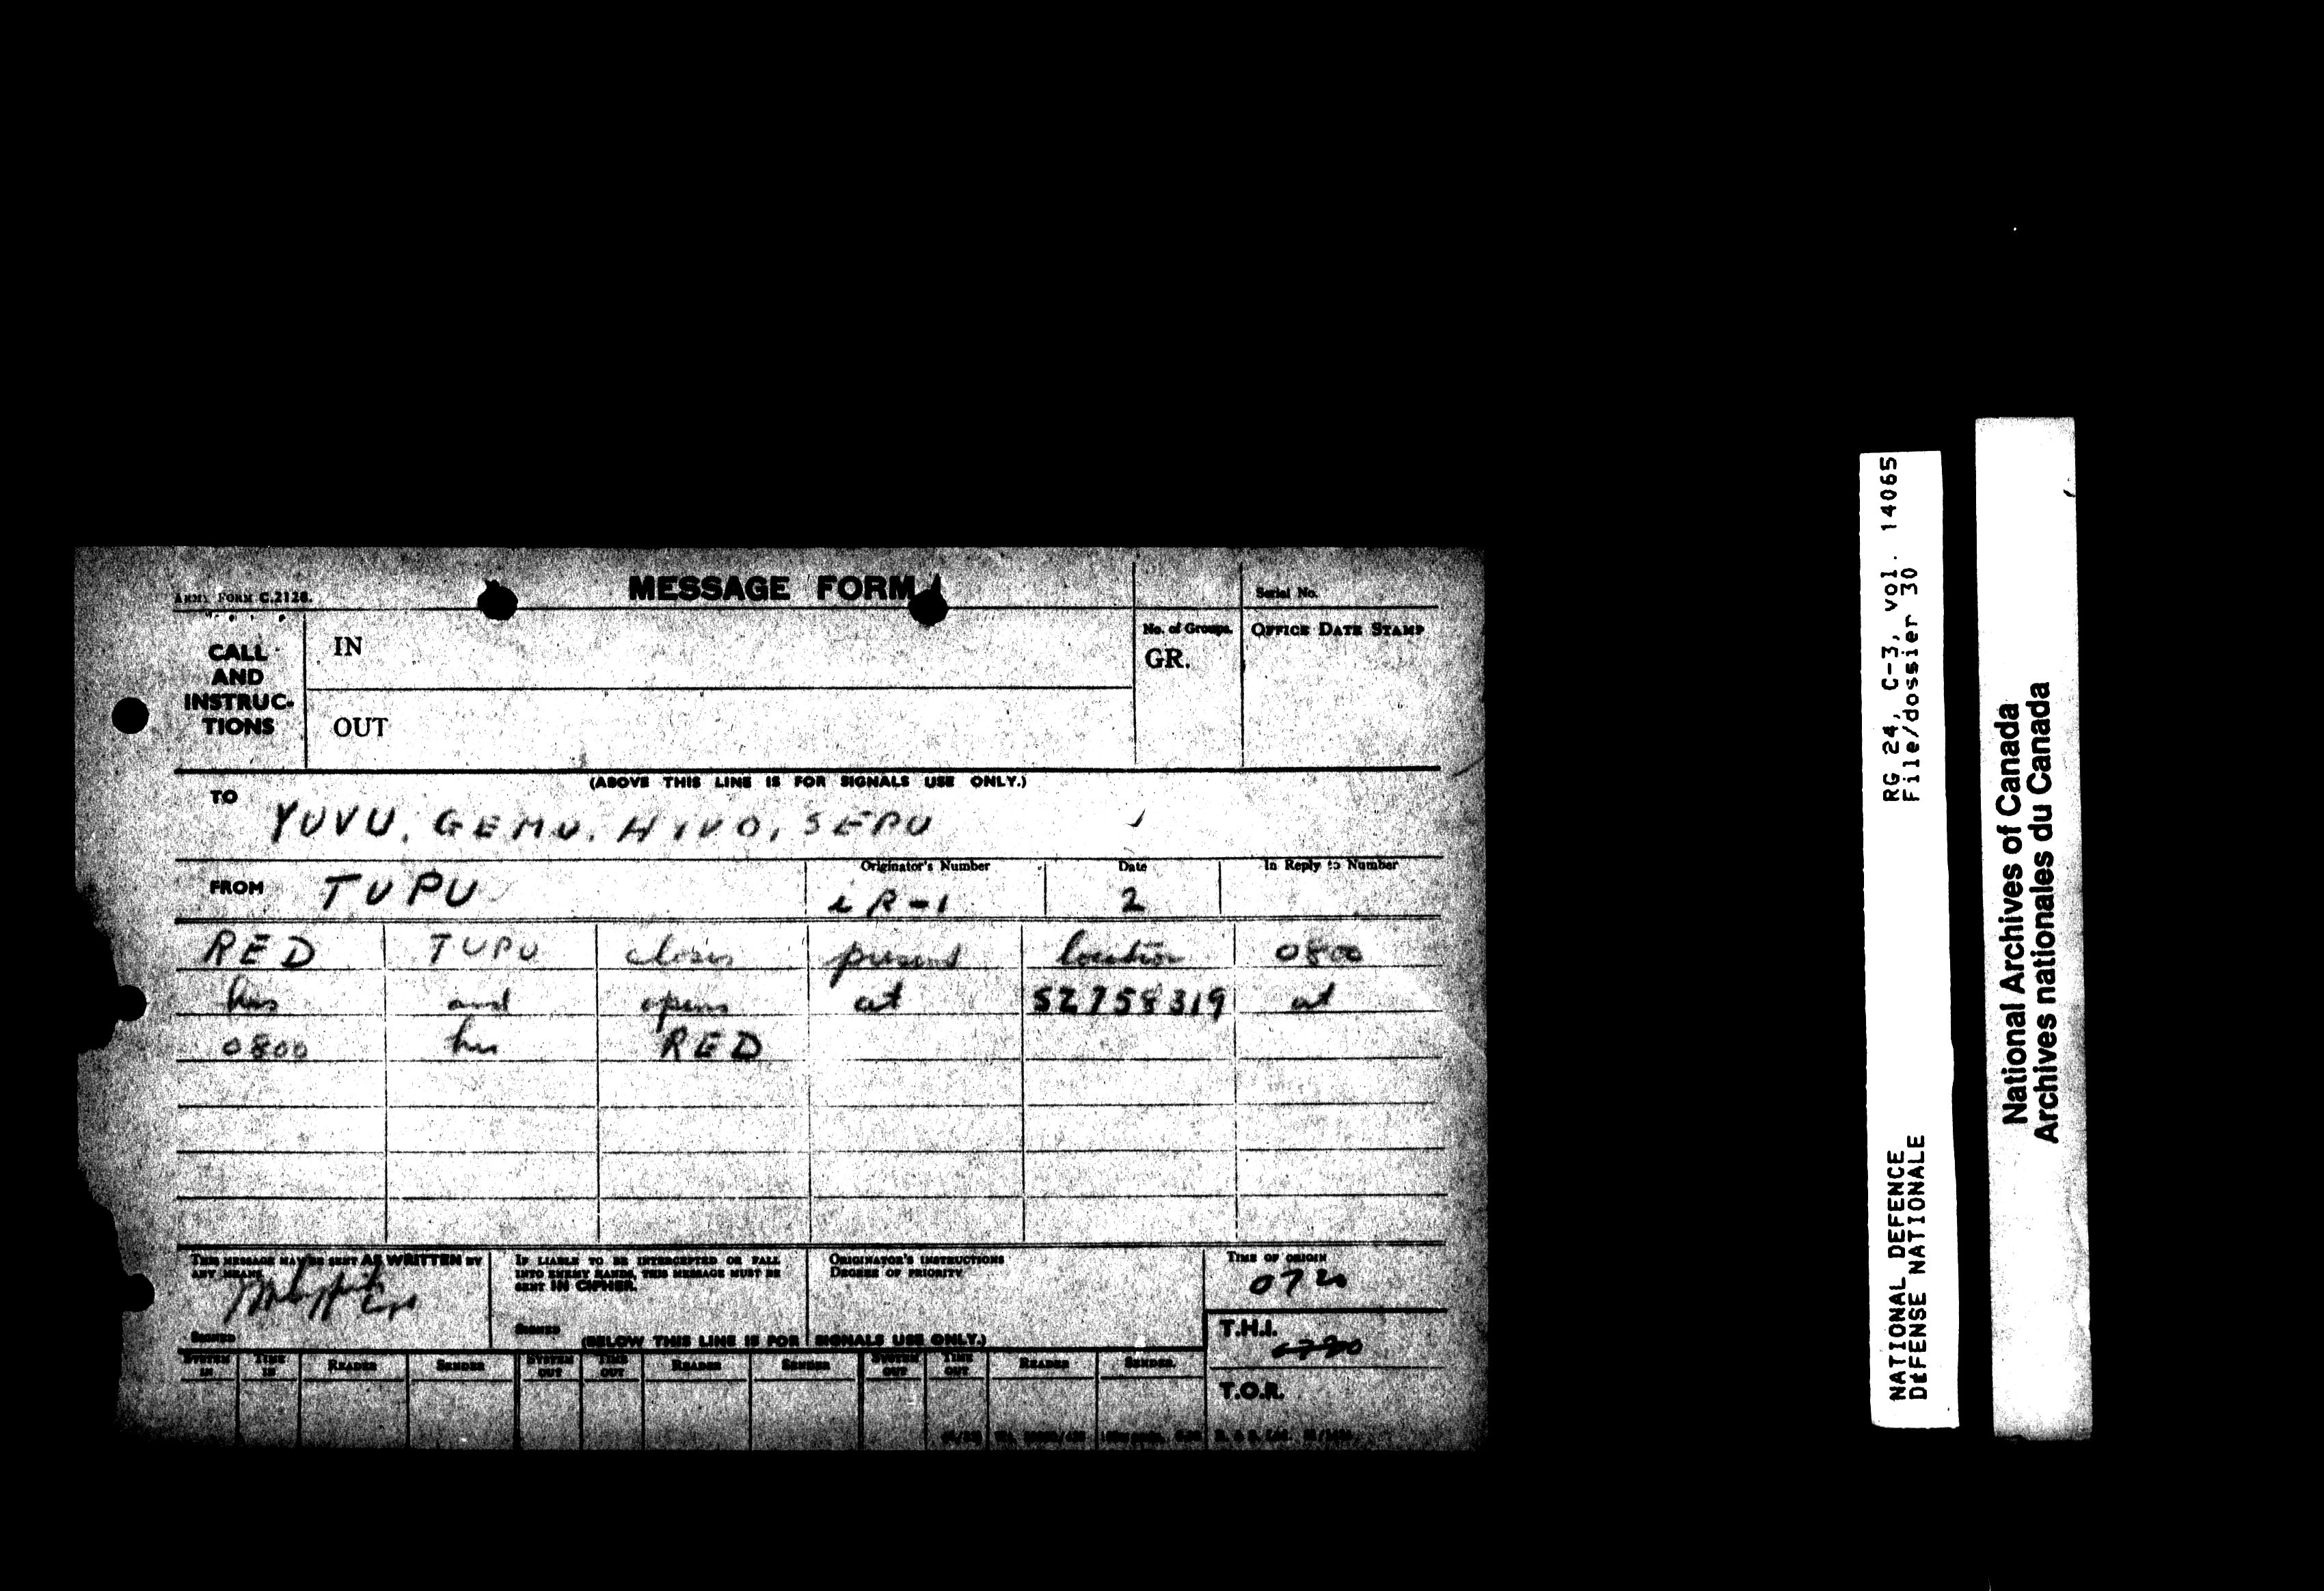 ARMY FORM C.2128.
MESSAGE FORM
Serial No.
CALL AND INSTRUC-TIONS
IN
OUT
No. of Groups.
GR.
OFFICE DATE STAMP
(ABOVE THIS LINE IS FOR SIGNALS USE ONLY.)
TO
YUVU, GEMU, HIVO, SEPU
FROM TUPU
Originator's Number
R-1
Date
2
In Reply to Number
RED TUPU closes present location 0800
hrs and opens at SZ758319 at
0800 hrs RED
THIS MESSAGE MAY BE SENT AS WRITTEN BY ANY MEANS
Capt
SIGNED
IF LIABLE TO BE INTERCEPTED OR FALL INTO ENEMY HANDS, THIS MESSAGE MUST BE SENT IN CIPHER.
SIGNED
ORIGINATOR'S INSTRUCTIONS
DEGREE OF PRIORITY
TIME OF ORIGIN
0720
(BELOW THIS LINE IS FOR SIGNALS USE ONLY.)
T.H.I.
0720
T.O.R.
SYSTEM IN TIME IN READER SENDER SYSTEM OUT TIME OUT READER SENDER SYSTEM OUT TIME OUT READER SENDER
RG 24, C-3, vol. 14065
File/dossier 30
NATIONAL DEFENCE
DEFENSE NATIONALE
National Archives of Canada
Archives nationales du Canada